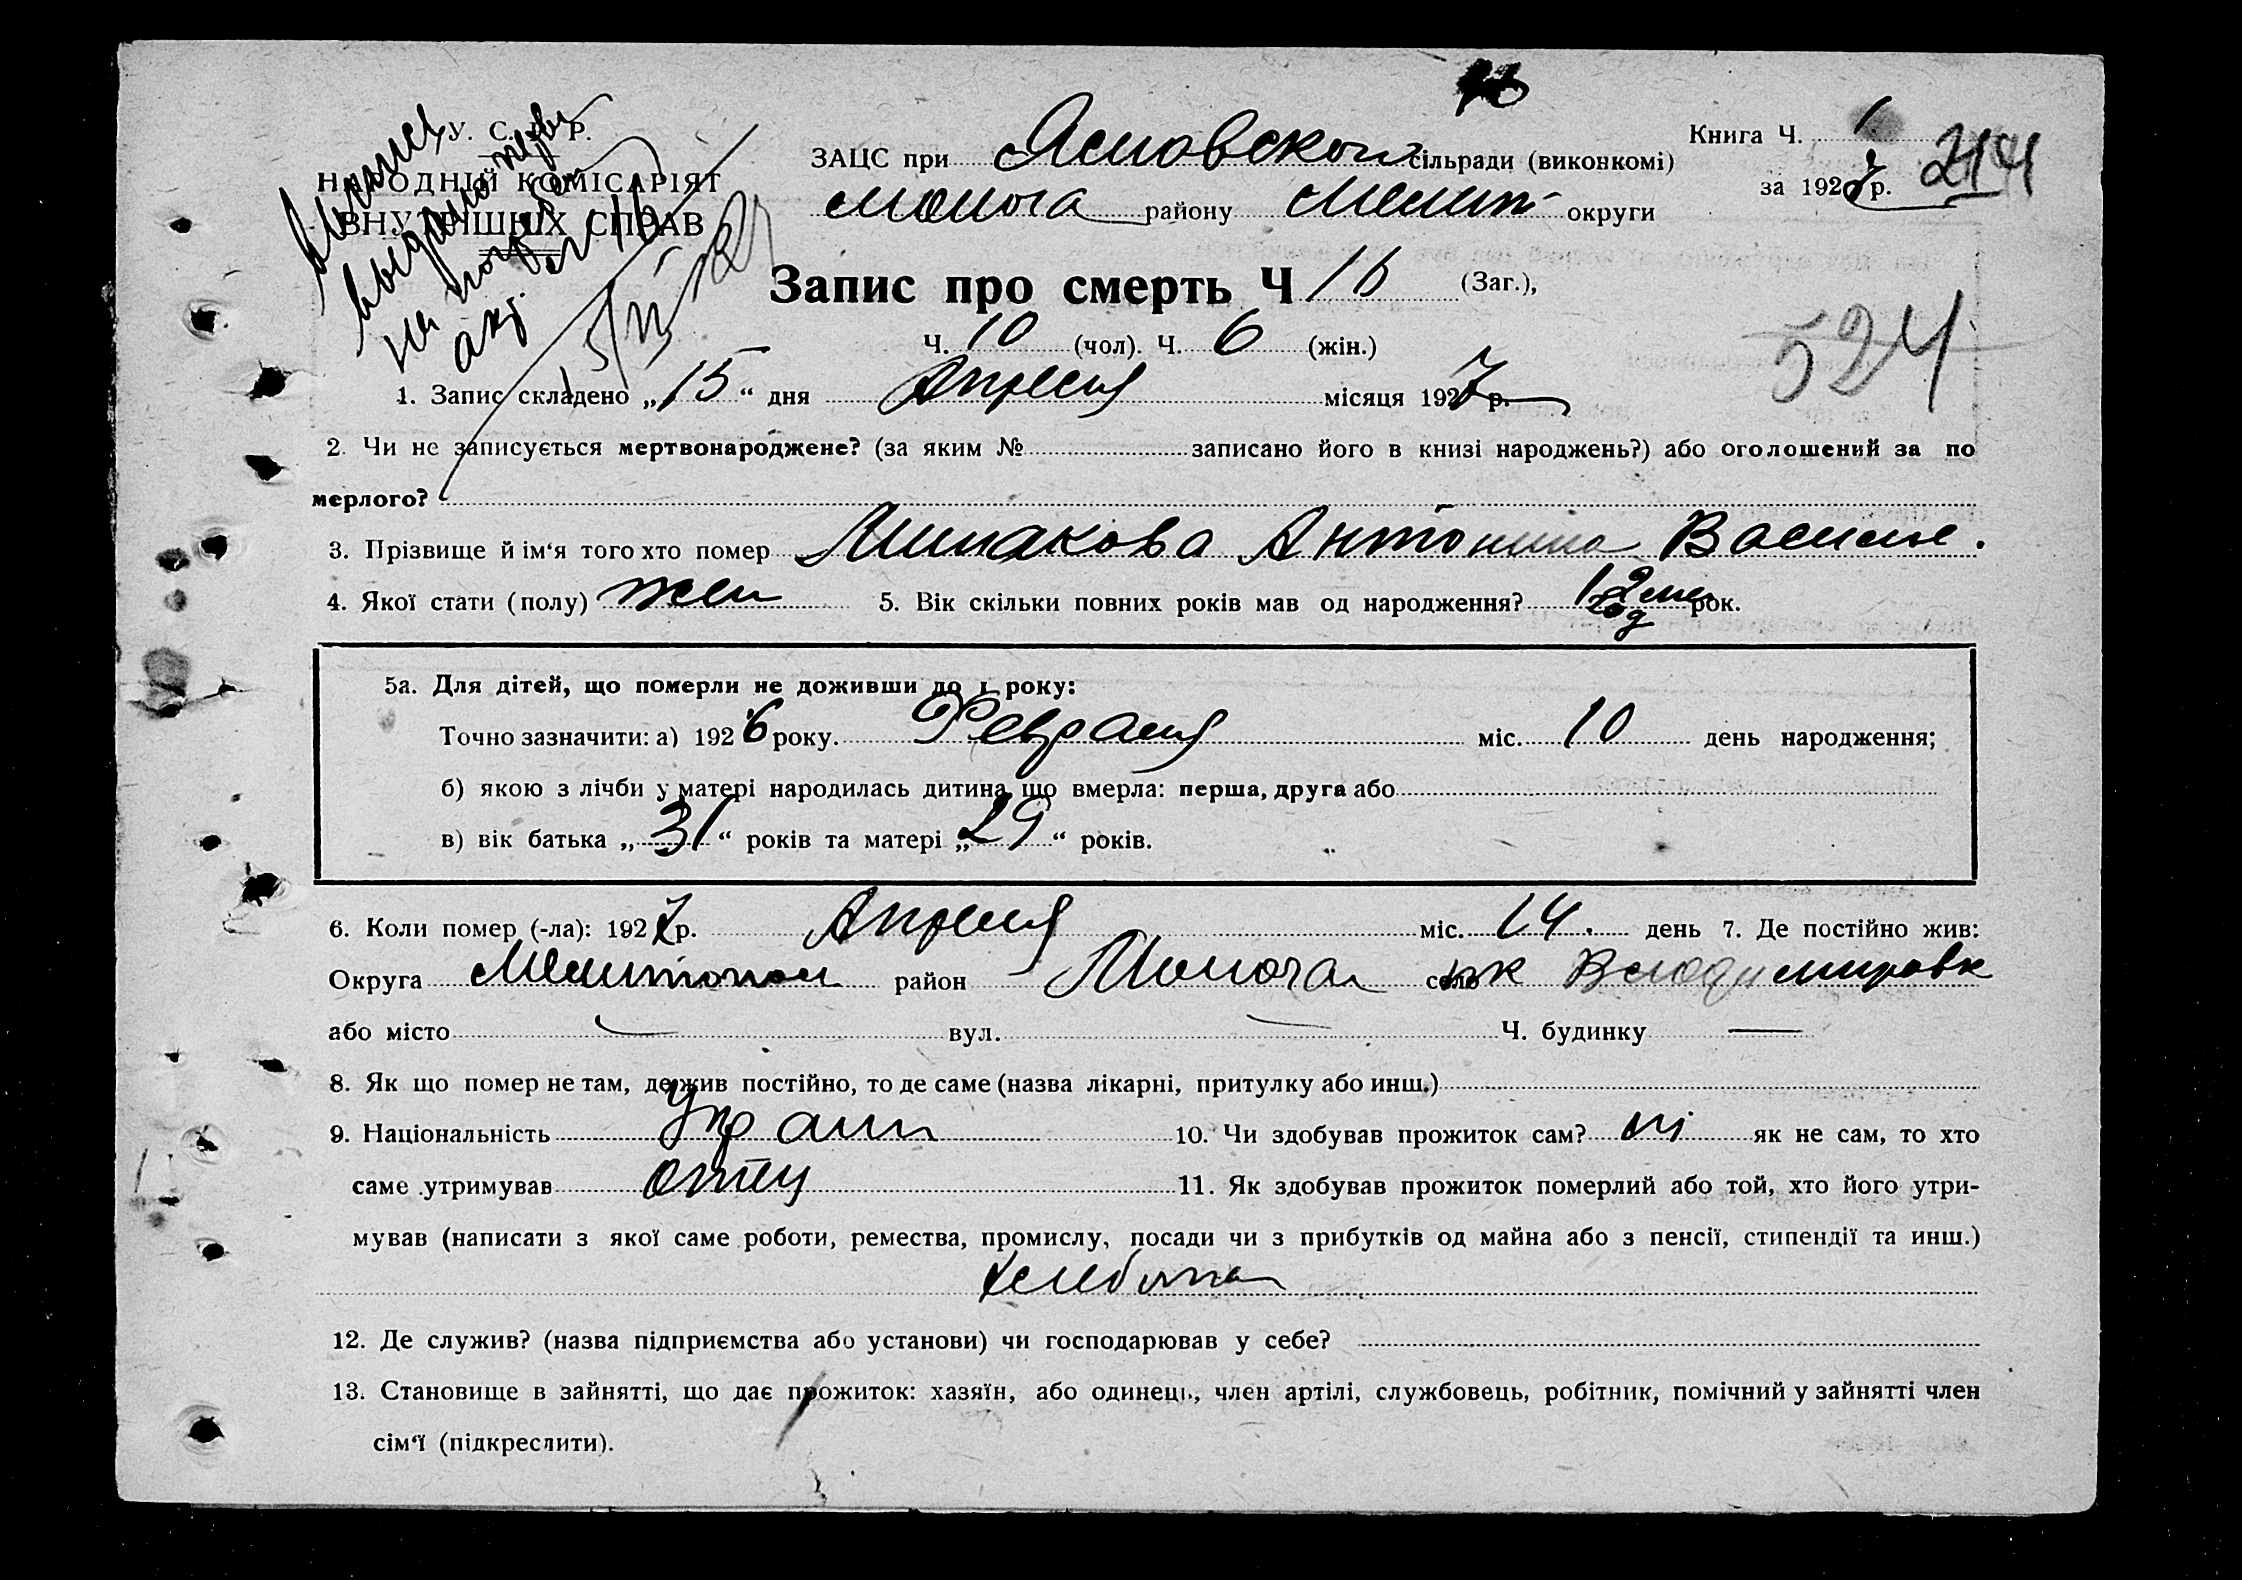 У. С. Р. Р.
НАРОДНІЙ КОМІСАРІЯТ
ВНУТРІШНІХ СПРАВ
Книга Ч. 1
за 1927 р. 214
ЗАЦС при сільради (виконкомі)
району Мелит округи
Запис про смерть Ч 16 (Заг.),
524
Ч. 10 (чол). Ч. 6 (жін.)
1. Запис складено „15“ дня Апреля місяця 1927 р.
2. Чи не записується мертвонароджене? (за яким № записано його в книзі народжень?) або оголошений за по
мерлого?
3. Прізвище й ім‘я того хто помер Антонина Василье.
4. Якої стати (полу) жен 5. Вік скільки повних років мав од народження? 1 год 2 мес рок.
5а. Для дітей, що померли не доживши до 1 року:
Точно зазначити: а) 1926 року. Февраля міс. 10 день народження;
б) якою з лічби у матері народилась дитина що вмерла: перша, друга або
в) вік батька „31“ років та матері „29“ років.
6. Коли помер (-ла): 1927 р. Апреля міс. 14. день 7. Де постійно жив:
Округа район село Володимировк
або місто — вул. — Ч. будинку —
8. Як що помер не там, де жив постійно, то де саме (назва лікарні, притулку або инш.)
9. Національність 10. Чи здобував прожиток сам? ні як не сам, то хто
саме утримував отец 11. Як здобував прожиток померлий або той, хто його утри-
мував (написати з якої саме роботи, ремества, промислу, посади чи з прибутків од майна або з пенсії, стипендії та инш.)
12. Де служив? (назва підприємства або установи) чи господарював у себе?
13. Становище в зайнятті, що дає прожиток: хазяїн, або одинець, член артілі, службовець, робітник, помічний у зайнятті член
сім‘ї (підкреслити).